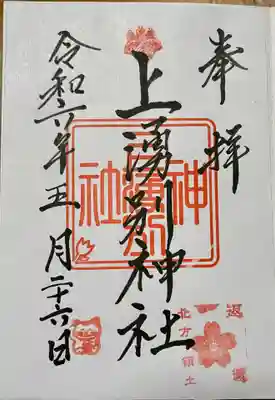 奉拝
上湧別神社
令和六年五月二十六日
返還
北方領土